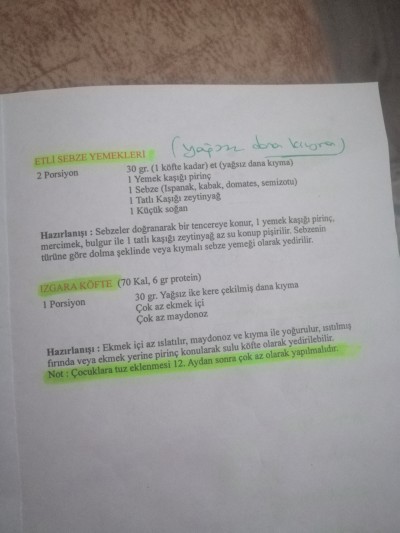 ETLİ SEBZE YEMEKLERİ (yağsız dana kıyma)
2 Porsiyon 30 gr. (1 köfte kadar) et (yağsız dana kıyma)
1 Yemek kaşığı pirinç
1 Sebze (Ispanak, kabak, domates, semizotu)
1 Tatlı Kaşığı zeytinyağ
1 Küçük soğan
Hazırlanışı : Sebzeler doğranarak bir tencereye konur, 1 yemek kaşığı pirinç,
mercimek, bulgur ile 1 tatlı kaşığı zeytinyağ az su konup pişirilir. Sebzenin
türüne göre dolma şeklinde veya kıymalı sebze yemeği olarak yedirilir.
IZGARA KÖFTE (70 Kal, 6 gr protein)
1 Porsiyon 30 gr. Yağsız ike kere çekilmiş dana kıyma
Çok az ekmek içi
Çok az maydonoz
Hazırlanışı : Ekmek içi az ıslatılır, maydonoz ve kıyma ile yoğurulur, ısıtılmış
fırında veya ekmek yerine pirinç konularak sulu köfte olarak yedirilebilir.
Not : Çocuklara tuz eklenmesi 12. Aydan sonra çok az olarak yapılmalıdır.